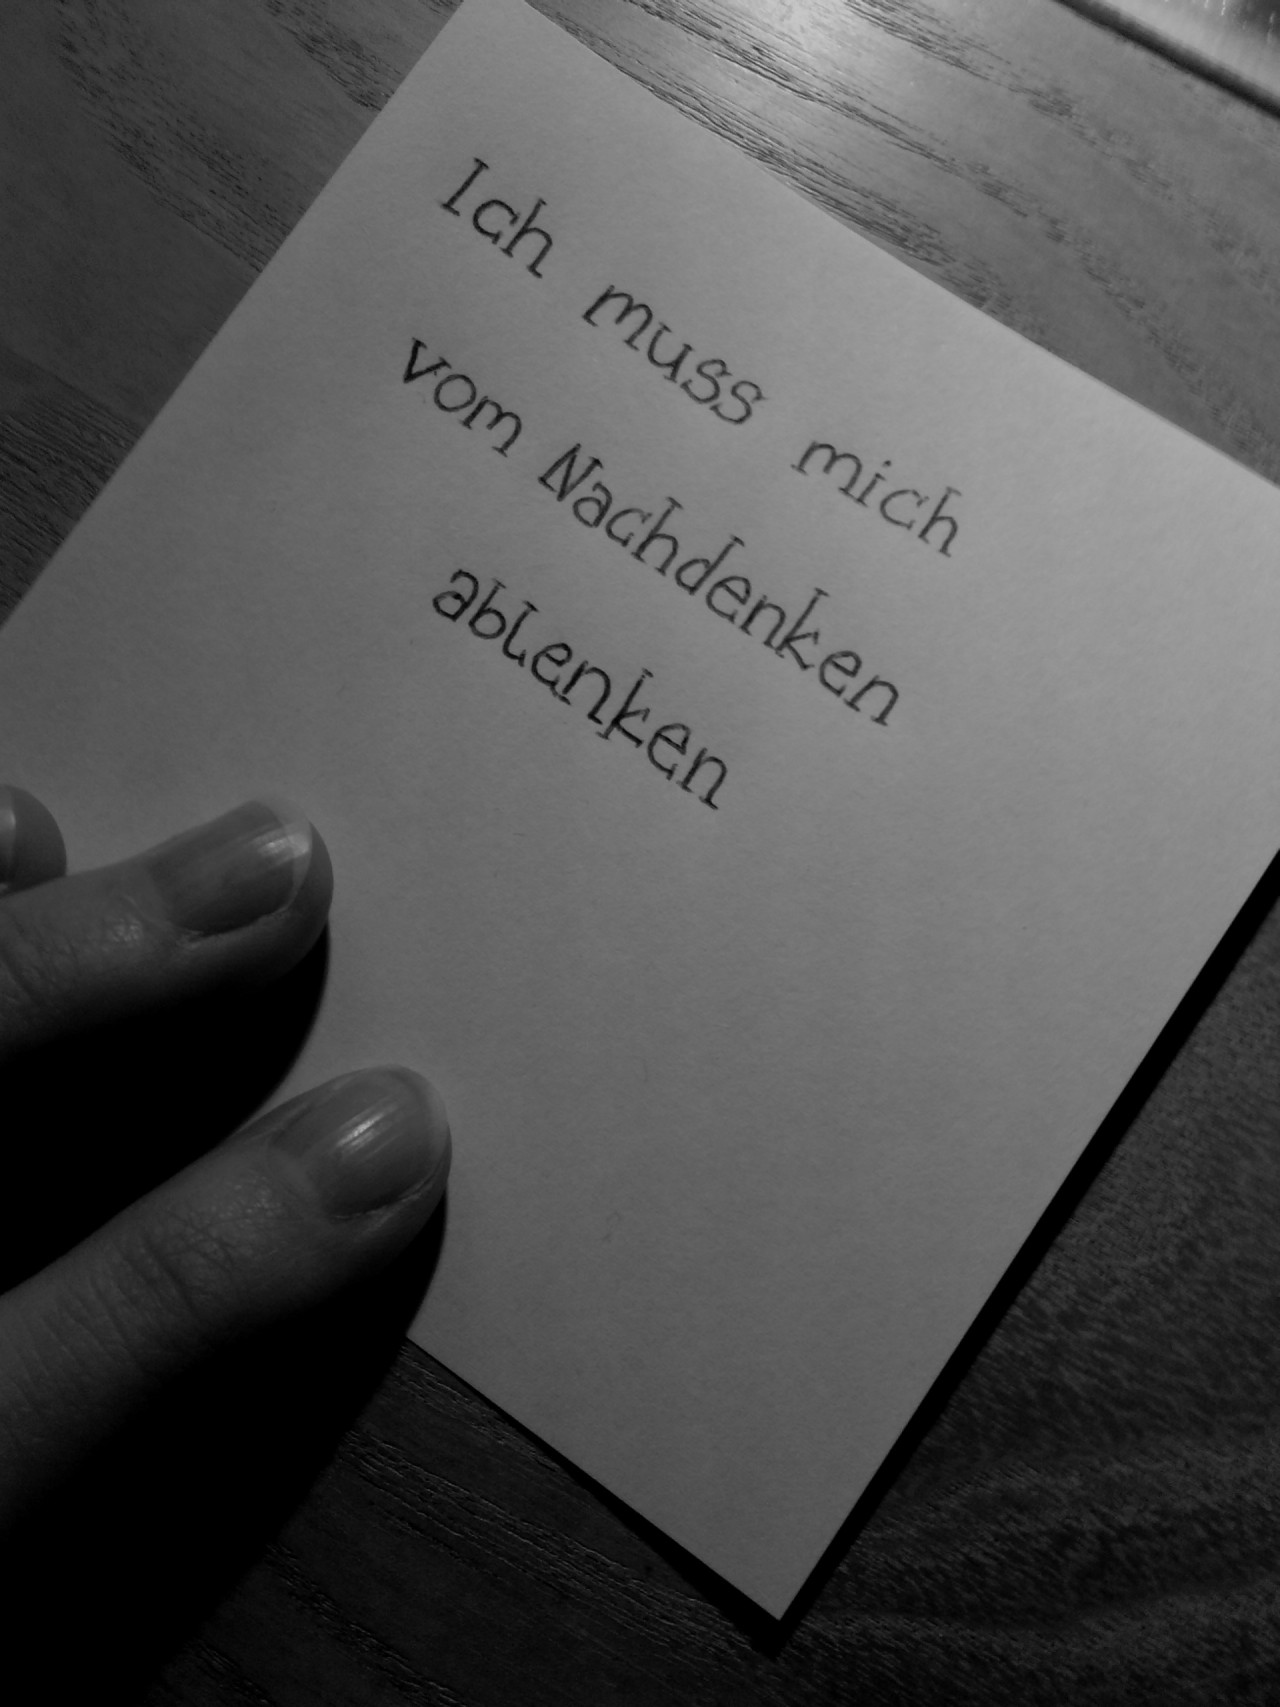 Ich muss mich
vom Nachdenken
ablenken